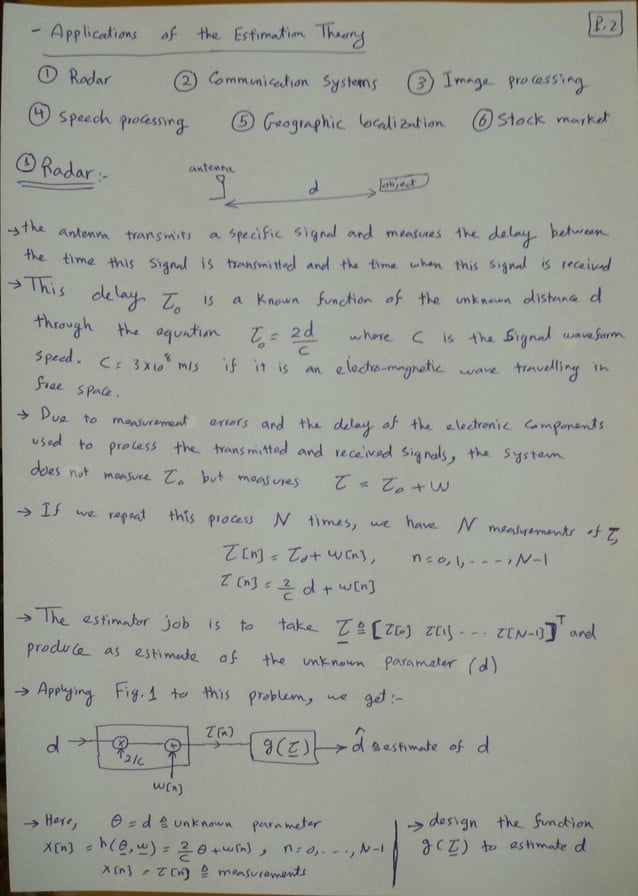 - Applications of the Estimation Theory P.2
① Radar ② Communication Systems ③ Image processing
④ Speech processing ⑤ Geographic localization ⑥ Stock market
① Radar :-
antenna
d
object
→ the antenna transmits a specific signal and measures the delay between
the time this signal is transmitted and the time when this signal is received
→ This delay τ₀ is a known function of the unknown distance d
through the equation τ₀ = 2d/c where c is the signal waveform
speed. c = 3×10⁸ m/s if it is an electro-magnetic wave travelling in
free space.
→ Due to measurement errors and the delay of the electronic components
used to process the transmitted and received signals, the system
does not measure τ₀ but measures τ = τ₀ + w
→ If we repeat this process N times, we have N measurements of τ,
τ[n] = τ₀ + w[n], n = 0, 1, ---, N-1
τ[n] = 2/c d + w[n]
→ The estimator job is to take τ ≜ [τ[0] τ[1] --- τ[N-1]]ᵀ and
produce as estimate of the unknown parameter (d)
→ Applying Fig. 1 to this problem, we get :-
d → × → + τ[n] g(τ) → d̂ ≜ estimate of d
2/c
w[n]
→ Here, θ = d ≜ unknown parameter
x[n] = h(θ, w) = 2/c θ + w[n], n = 0, ---, N-1
x[n] = τ[n] ≜ measurements
→ design the function
g(τ) to estimate d